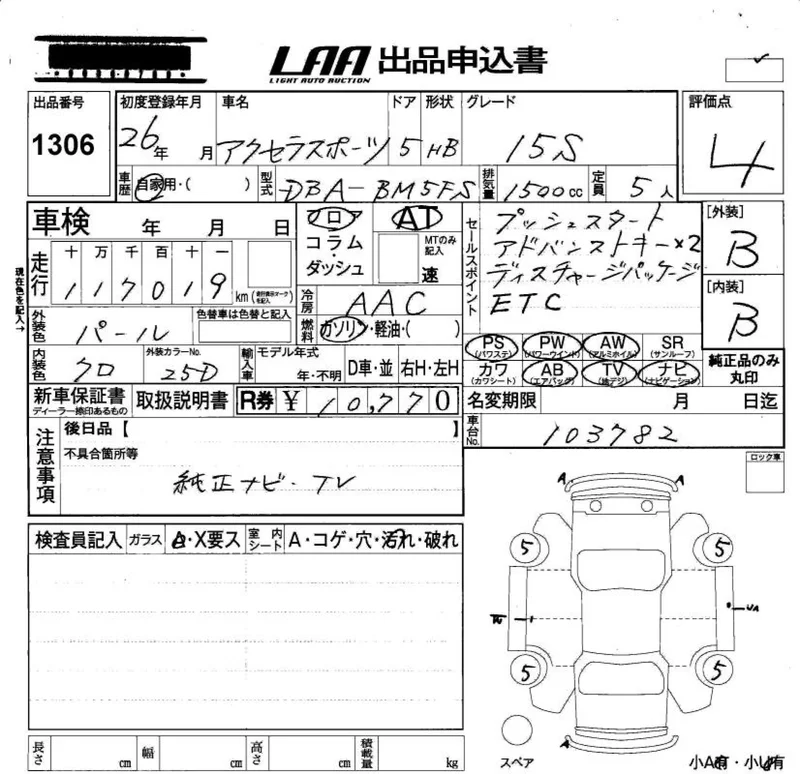 LAA 出品申込書
LIGHT AUTO AUCTION
出品番号 初度登録年月 車名 ドア 形状 グレード 評価点
1306 26年 月 アクセラスポーツ 5 HB 15S 4
車歴 自家用・( ) 型式 DBA-BM5FS 排気量 1500cc 定員 5人
車検 年 月 日 フロア AT セールスポイント プッシュスタート [外装]
コラム・ MTのみ記入 アドバンストキー×2 B
現在色を記入→
走行 十 万 千 百 十 一 ダッシュ 速 ディスチャージパッケージ
117019 km 冷房 AAC ETC [内装]
外装色 パール 色替車は色替と記入 燃料 ガソリン・軽油・( ) B
PS PW AW SR
(パワステ) (パワーウインド) (アルミホイル) (サンルーフ)
内装色 クロ 外装カラーNo. 25D 輸入車 モデル年式 年・不明 D車・並 右H・左H
カワ AB TV ナビ 純正品のみ
(カワシート) (エアバッグ) (地デジ) (ナビゲーション) 丸印
新車保証書 取扱説明書 R券 ¥ 10,770 名変期限 月 日迄
ディーラー捺印あるもの
注意事項 後日品【 】 車台No. 103782
不具合箇所等 ロック車
純正ナビ・TV
検査員記入 ガラス A・X要ス 室内シート A・コゲ・穴・汚れ・破れ
A A
5 5
5 5
A
長さ cm 幅 cm 高さ cm 積載量 kg スペア 小A有・小U有